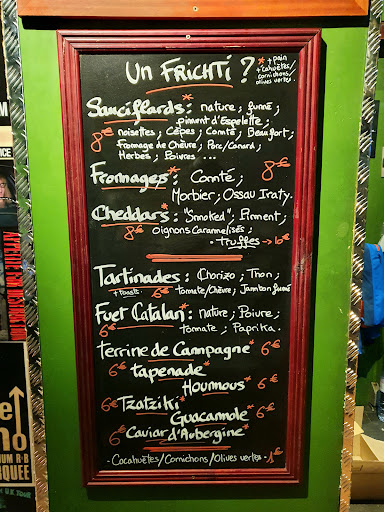 Un FRICHTI ? * + pain
+ cahuètes/
cornichons/
olives vertes.
Sauciflards* : nature ; fumé ;
piment d'Espelette ;
8€ noisettes ; Cèpes ; Comté ; Beaufort ;
Fromage de Chèvre ; Porc/Canard ;
Herbes ; Poivres ... 8€
Fromages* : Comté ;
Morbier ; Ossau Iraty.
Cheddars* : "Smoked" ; Piment ;
8€ Oignons Caramélisés ;
• truffes → 10€
Tartinades* : Chorizo ; Thon ;
+ toasts. 6€ tomate/Chèvre ; Jambon fumé
Fuet Catalan* : nature ; Poivre ;
6€ tomate ; Paprika.
Terrine de Campagne* 6€
6€ Tapenade*
Houmous* 6€
6€ Tzatziki*
Guacamole* 6€
6€ Caviar d'Aubergine*
- Cacahuètes/Cornichons/Olives vertes - 1€